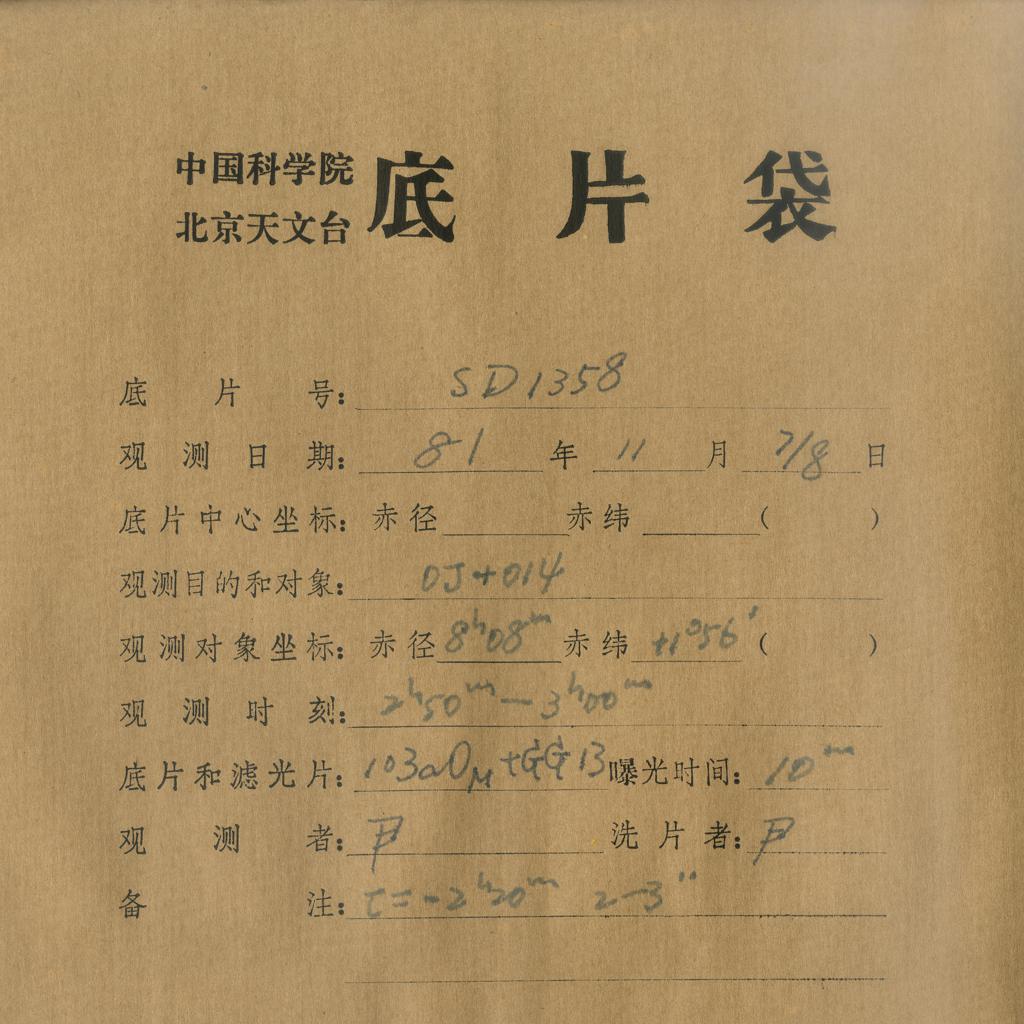 中国科学院
北京天文台
底片袋
底片号: SD1358
观测日期: 81年11月7/8日
底片中心坐标: 赤径 赤纬 ( )
观测目的和对象: OJ+014
观测对象坐标: 赤径 8ʰ08ᵐ 赤纬 +1°56′ ( )
观测时刻: 2ʰ50ᵐ—3ʰ00ᵐ
底片和滤光片: 103aO_M+GG13 曝光时间: 10ᵐ
观测者: 洗片者:
备注: t=-2ʰ20ᵐ 2-3″